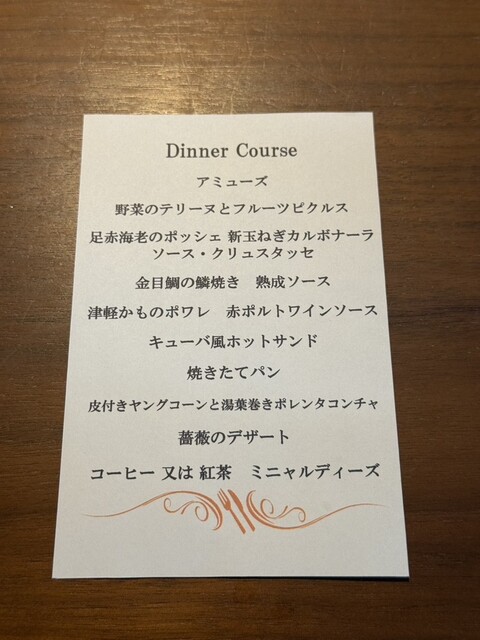 Dinner Course
アミューズ
野菜のテリーヌとフルーツピクルス
足赤海老のポッシェ 新玉ねぎカルボナーラ
ソース・クリュスタッセ
金目鯛の鱗焼き　熟成ソース
津軽かものポワレ　赤ポルトワインソース
キューバ風ホットサンド
焼きたてパン
皮付きヤングコーンと湯葉巻きポレンタコンチャ
薔薇のデザート
コーヒー 又は 紅茶　ミニャルディーズ